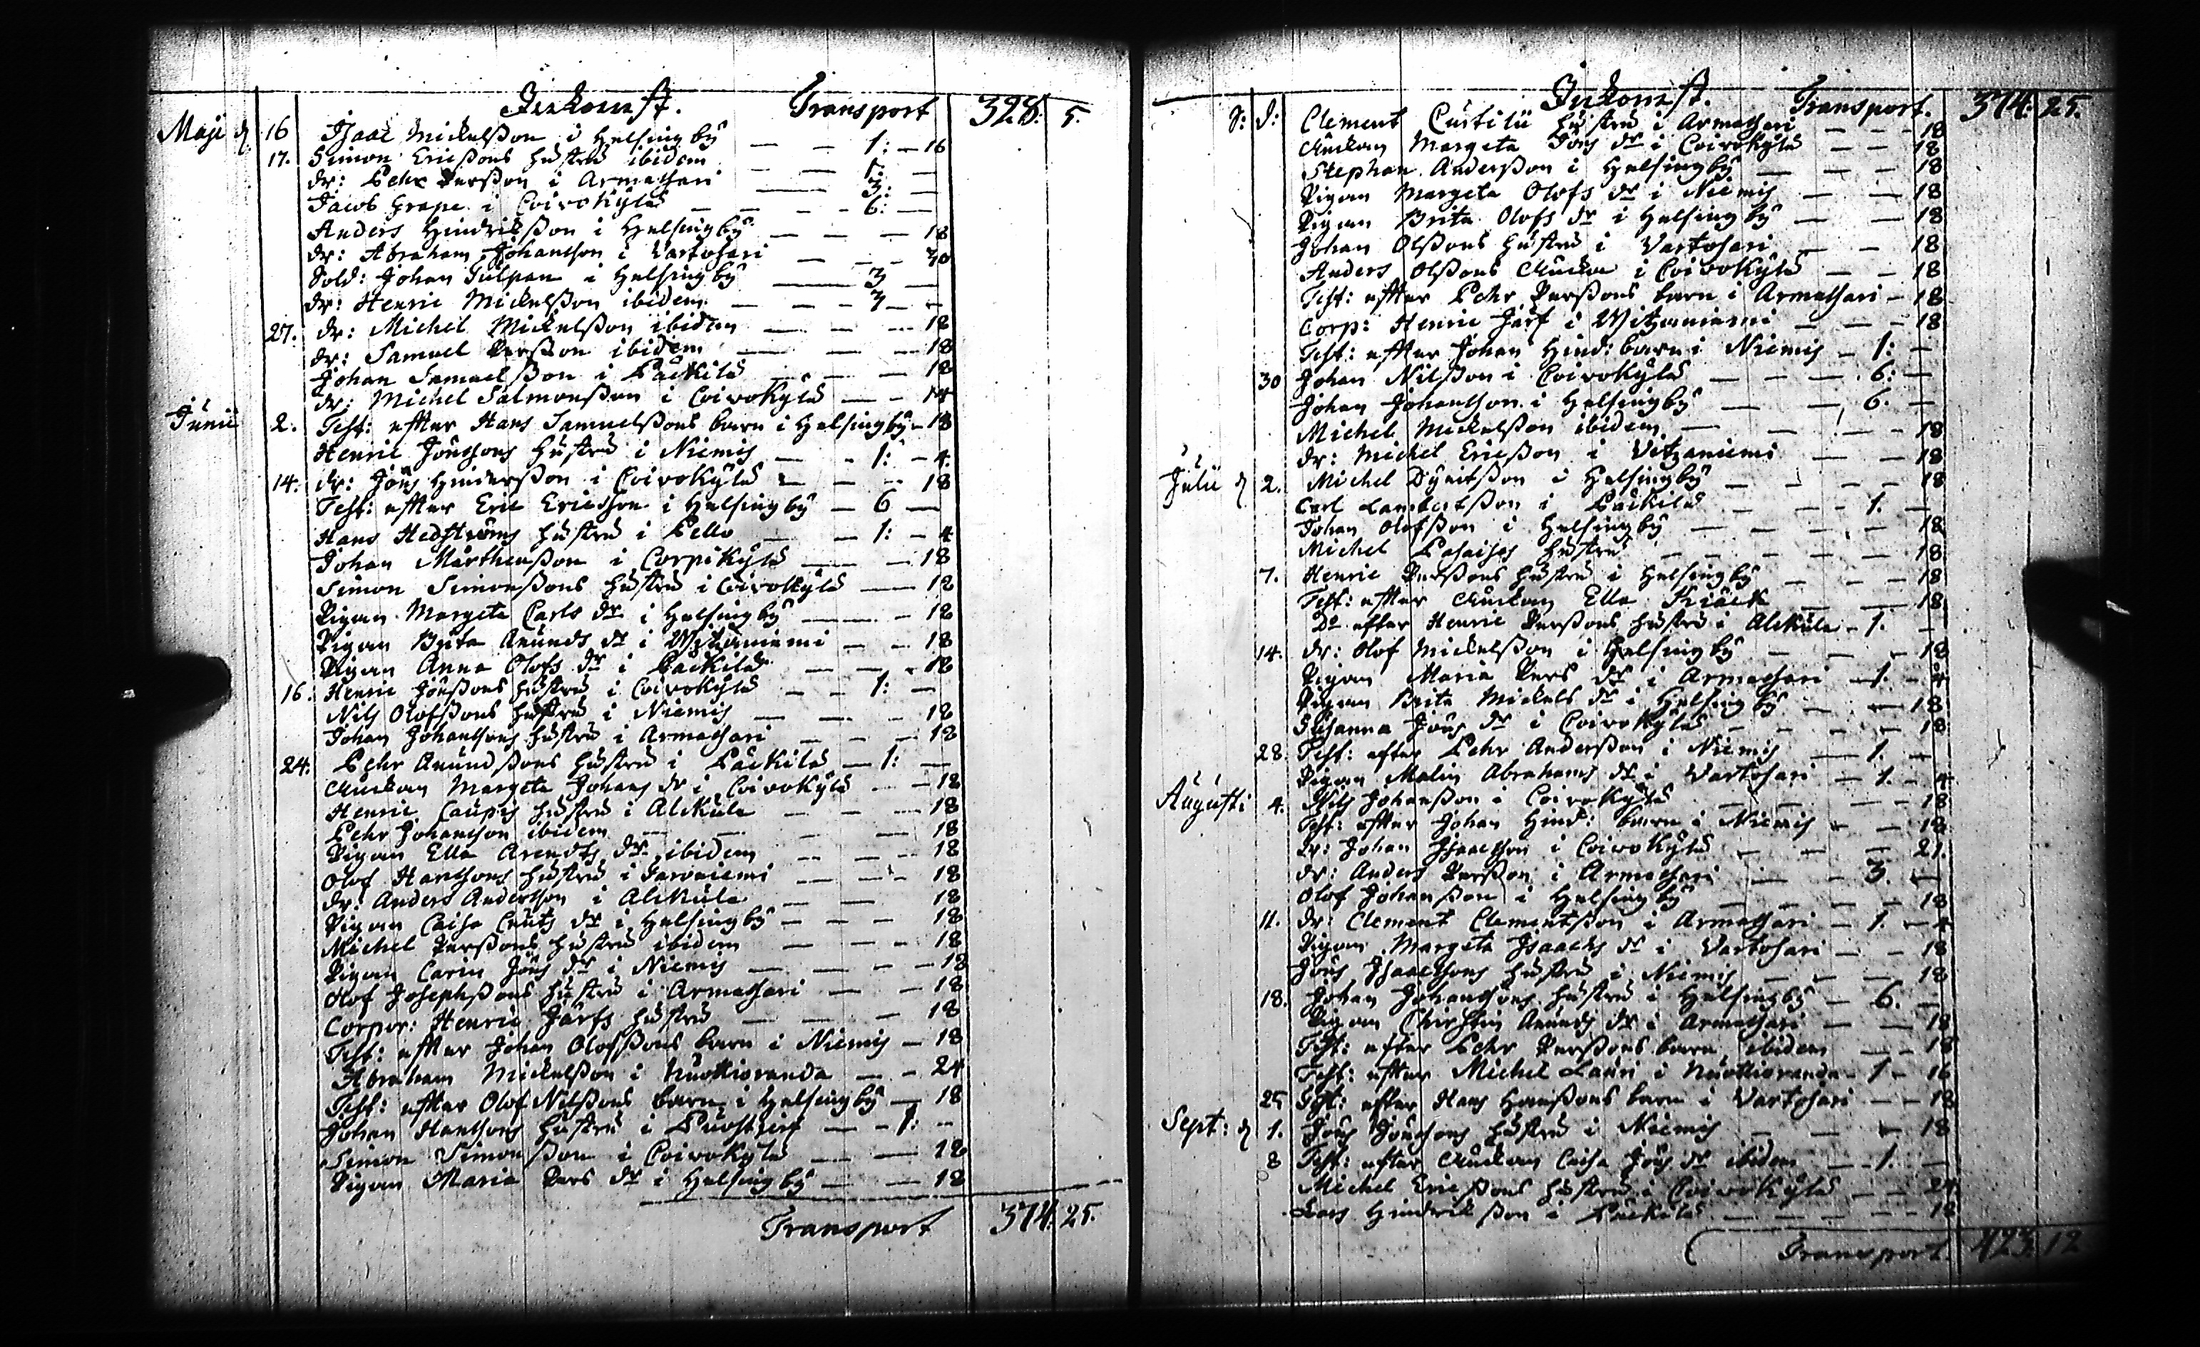 Inkomst. Transport 328: 5.
Maji d. 16 Isaac Mickelsson i Helsingby — — 1: — 16
17. Simon Ericssons hustru ibidem — — 1: —
dr: Pehr Persson i Armasari — 3: —
Jacob Grape i Coivokylä — — 6: —
Anders Hindricsson i Helsingby — — — 18
dr: Abraham Johansson i Vartosari — — 30
Sold: Johan Tulpan i Helsingby — 3 —
dr: Henric Mickelsson ibidem — — — 3 — —
27. dr: Michel Mickelsson ibidem — — — 18
dr: Samuel Persson ibidem — — — 18
Johan Samuelsson i Päckilä — — — 18
dr: Michel Salmonsson i Coivokylä — — 14
Junii 2. Test: efter Hans Samuelssons barn i Helsingby — 18
Henric Jönssons hustru i Niemis — — 1: — 4.
14. dr: Jöns Hindersson i Coivokylä — — 18
Test: efter Eric Ericsson i Helsingby — 6 —
Hans Hedströms hustru i Pello — — 1: — 4
Johan Mårthensson i Corpikylä — — 18
Simon Simonssons hustru i Coivokylä — 18
Pigan Margeta Carls dr i Helsingby — — 18
Pigan Brita Anunds dr i Witzaniemi — — 18
Pigan Anna Olofs dr i Päckilä — — 18
16. Henric Jönssons hustru i Coivokylä — — 1: —
Nils Olofssons hustru i Niemis — — — 18
Johan Johanssons hustru i Armasari — — 18
24. Pehr Anundssons hustru i Päckilä — 1: —
Änckan Margeta Johans dr i Coivokylä — — 18
Henric Caupis hustru i Alckula — — 18
Pehr Johansson ibidem — — — 18
Pigan Ella Arendts dr ibidem — — — 18
Olof Hanssons hustru i Jarvniemi — — — 18
dr: Anders Andersson i Alckula — — — 18
Pigan Caisa Cnuts dr i Helsingby — — — 18
Michel Perssons hustru ibidem — — — 18
Pigan Carin Jöns dr i Niemis — — — — 18
Olof Josephssons hustru i Armasari — — — 18
Corpor: Henric Järfs hustru — — — 18
Test: efter Johan Olofssons barn i Niemis — 18
Abraham Mickelsson i Nuottioranda — — 24
Test: efter Olof Nilssons barn i Helsingby — 18
Johan Hanssons hustru i — — 1: —
Simon Simonsson i Coivokylä — — 18
Pigan Maria Pers dr i Helsingby — — 18
Transport 374. 25.
Inkomst. Transport. 374: 25.
d: d: Clement hustru i Armasari — — 18
Änckan Margeta Jöns dr i Coivokylä — — 18
Stephan Andersson i Helsingby — — — 18
Pigan Margeta Olofs dr i Niemis — — 18
Pigan Brita Olofs dr i Helsingby — — 18
Johan Olssons hustru i Vartosari — — 18
Anders Olssons Äncka i Coivokylä — — 18
Test: efter Pehr Perssons barn i Armasari — 18
Corp: Henric Järf i Witzaniemi — — — 18
Test: efter Johan Hind: barn i Niemis — 1: —
30 Johan Nilsson i Coivokylä — — — 6: —
Johan Johansson i Helsingby — — 6. —
Michel Mickelsson ibidem — — — — 18
dr: Michel Ericsson i Vitzaniemi — — 18
Julii d 2. Michel i Helsingby — — — 18
Carl Lambertsson i Päckilä — — 1. —
Johan Olofsson i Helsingby — — — 18
Michel hustru — — — — 18
7. Henric Perssons hustru i Helsingby — — — 18
Test: efter Änckan Ella — — — 18
Do efter Henric Perssons hustru i Alckula — 1. —
14. dr: Olof Mickelsson i Helsingby — — — 18
Pigan Maria Pers dr i Armasari — 1. — 4
Pigan Brita Mickels dr i Helsingby — — 18
Susanna Jöns dr i Coivokylä — — — 18
28. Test: efter Pehr Andersson i Niemis — 1. —
Pigan Malin Abrahams dr i Vartosari — 1. — 4
Augusti 4. Nils Johansson i Coivokylä — — — 18
Test: efter Johan Hind: barn i Niemis — — 18
dr: Johan Isaacsson i Coivokylä — — — 21.
dr: Anders Persson i Armasari — — 3. —
Olof Johansson i Helsingby — — — 18
11. dr: Clement Clementsson i Armasari — 1. — 4
Pigan Margeta Isaacs dr i Vartosari — — 18
Jöns Isaacssons hustru i Niemis — — — 18
18. Johan Johanssons hustru i Helsingby — 6. —
Pigan Christin Anunds dr i Armasari — — 18
Test: efter Pehr Perssons barn ibidem — — 18
Test: efter Michel Lauri i Nuottioranda — 1 — 16
25 Test: efter Hans Hanssons barn i Vartosari — — 18
Sept: d 1. Jöns Jönssons hustru i Niemis — — — 18
8 Test: efter Änckan Caisa Jöns dr ibidem — 1. —
Michel Ericssons hustru i Coivokylä — — 24
Lars Hindricsson i Päckilä — — — 18
Transport. 423. 12